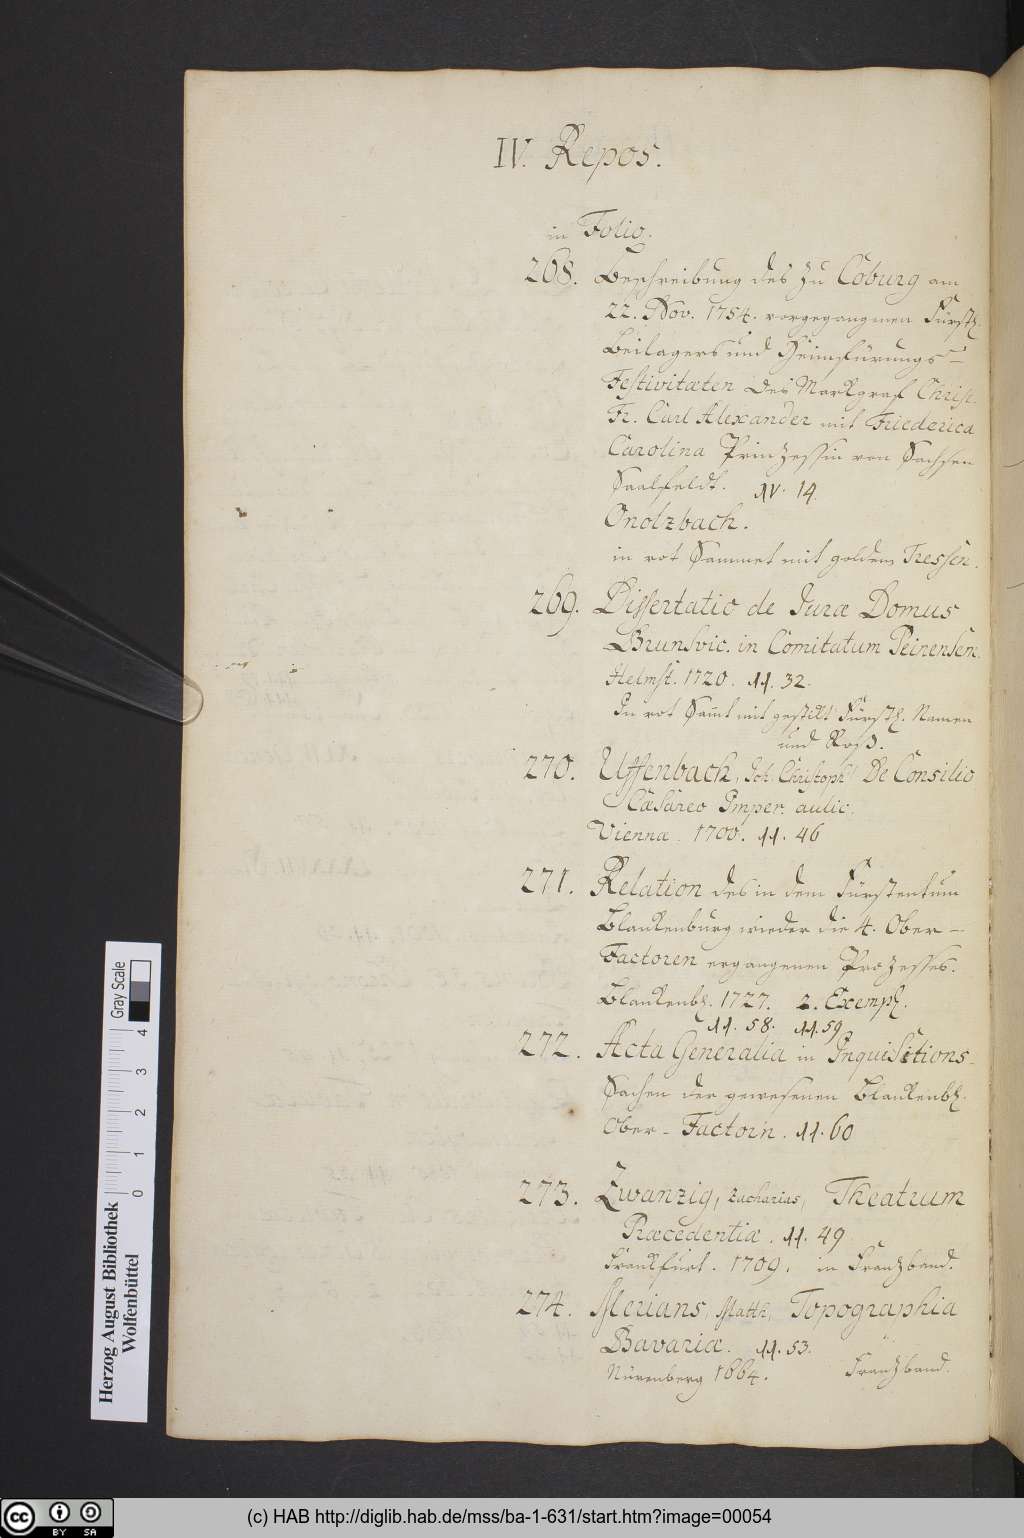 IV. Repos.
in Folio.
268. Beschreibung des zu Coburg am
22. Nov. 1754. vorgegangnen Fürstl.
Beilagers und Heimfürungs-
Festivitæten des Markgraf Christ.
Fr. Carl Alexander mit Friederica
Carolina Prinzessin von Sachsen
Saalfeldt. IV. 14.
Onolzbach.
in rot Sammet mit goldem Tressen.
269. Dissertatio de Juræ Domus
Brunsvic. in Comitatum Peinensem.
Helmst. 1720. 11. 32.
In rot Samt mit gestikt Fürstl. Namen
und Roß.
270. Uffenbach, Joh. Christoph De Consilio
Cæsareo Imper. aulic.
Viennæ. 1700. 11. 46
271. Relation des in dem Fürstentum
Blankenburg wieder die 4. Ober-
Factoren ergangenen Prozesses.
Blankenb. 1727. 2. Exempl.
11. 58. 11. 59
272. Acta Generalia in Inquisitions-
Sachen der gewesenen Blankenb.
Ober-Factorn. 11. 60
273. Zwanzig, Zacharias, Theatrum
Præcedentiæ. 11. 49
Frankfurt. 1709. in Franzband.
274. Merians, Matth, Topographia
Bavariæ. 11. 53.
Nürenberg 1664. Franzband.
Gray Scale
0 1 2 3 4
Herzog August Bibliothek
Wolfenbüttel
cc BY SA
(c) HAB http://diglib.hab.de/mss/ba-1-631/start.htm?image=00054